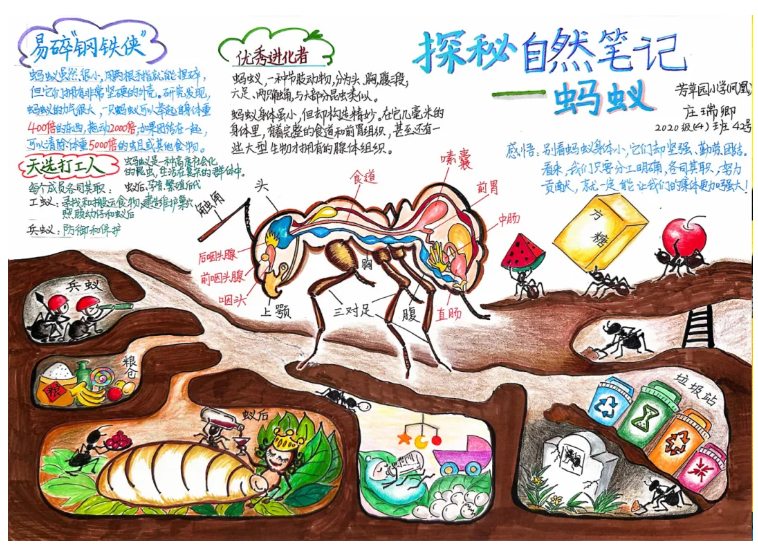 探秘自然笔记
——蚂蚁
芳草园小学(凤凰)
庄瑞卿
2020级(4)班42号
易碎“钢铁侠”
蚂蚁虽然很小,用两根手指就能捏碎,
但它们拥有非常坚硬的外壳。研究发现,
蚂蚁的力气很大,一只蚂蚁可以举起身体重
400倍的东西,拖动2000倍,如果团结在一起,
可以消除体重5000倍的虫且或其他食物。
天选打工人
蚂蚁是一种高度社会化
的昆虫,生活在复杂的群体中。
每个成员各司其职:
蚁后:孕育,繁殖后代
工蚁:寻找和搬运食物,建造维护巢穴,
照顾幼仔和蚁后
兵蚁:防御和保护
优秀进化者
蚂蚁,一种节肢动物,分为头、胸、腹三段,
六足、两雅触角,与大部分昆虫类似。
蚂蚁身体虽小,但却构造精妙。在它几毫米的
身体里,有着完整的食道和前胃组织,甚至还有一
些大型生物才拥有的腺体组织。
感悟:别看蚂蚁身体小,它们却坚强、勤劳、团结。
看来,我们只要分工明确,各司其职,努力
贡献大,就一定能让我们的集体更加强大!
头
食道
嗉囊
前胃
中肠
触角
后咽头腺
前咽头腺
咽头
上颚
胸
三对足
腹
直肠
方糖
兵蚁
粮仓
粮
蚁后
垃圾站